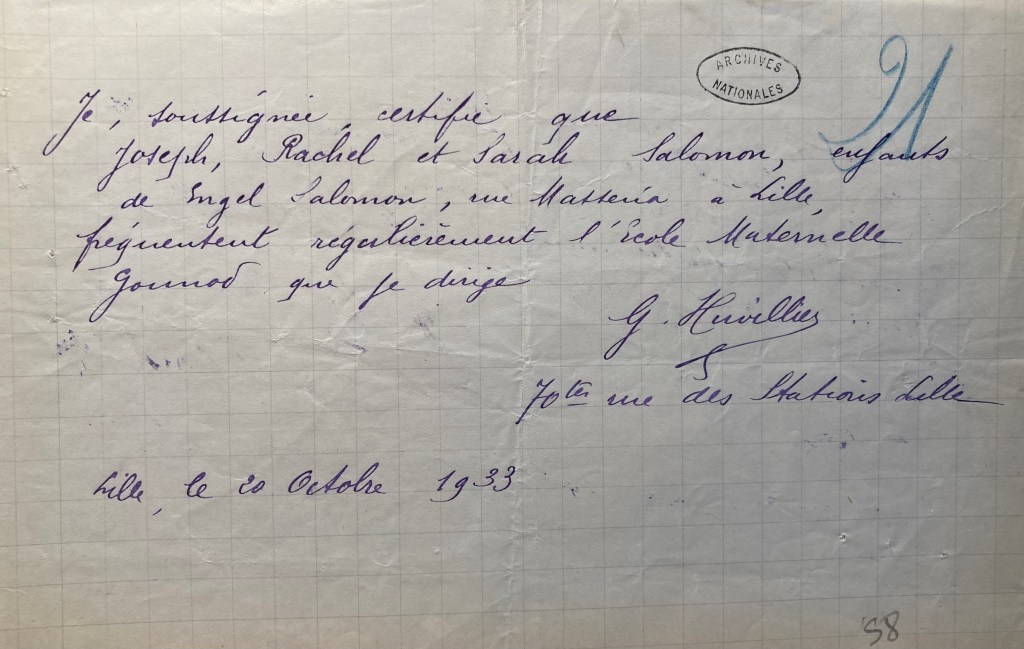 ARCHIVES
NATIONALES
91
Je, soussignée, certifie que
Joseph, Rachel et Sarah Salomon, enfants
de Engel Salomon, rue Masséna à Lille,
fréquentent régulièrement l'Ecole Maternelle
Gounod que je dirige
G. Huvillier
70ter rue des Stations Lille
Lille, le 20 Octobre 1933
58